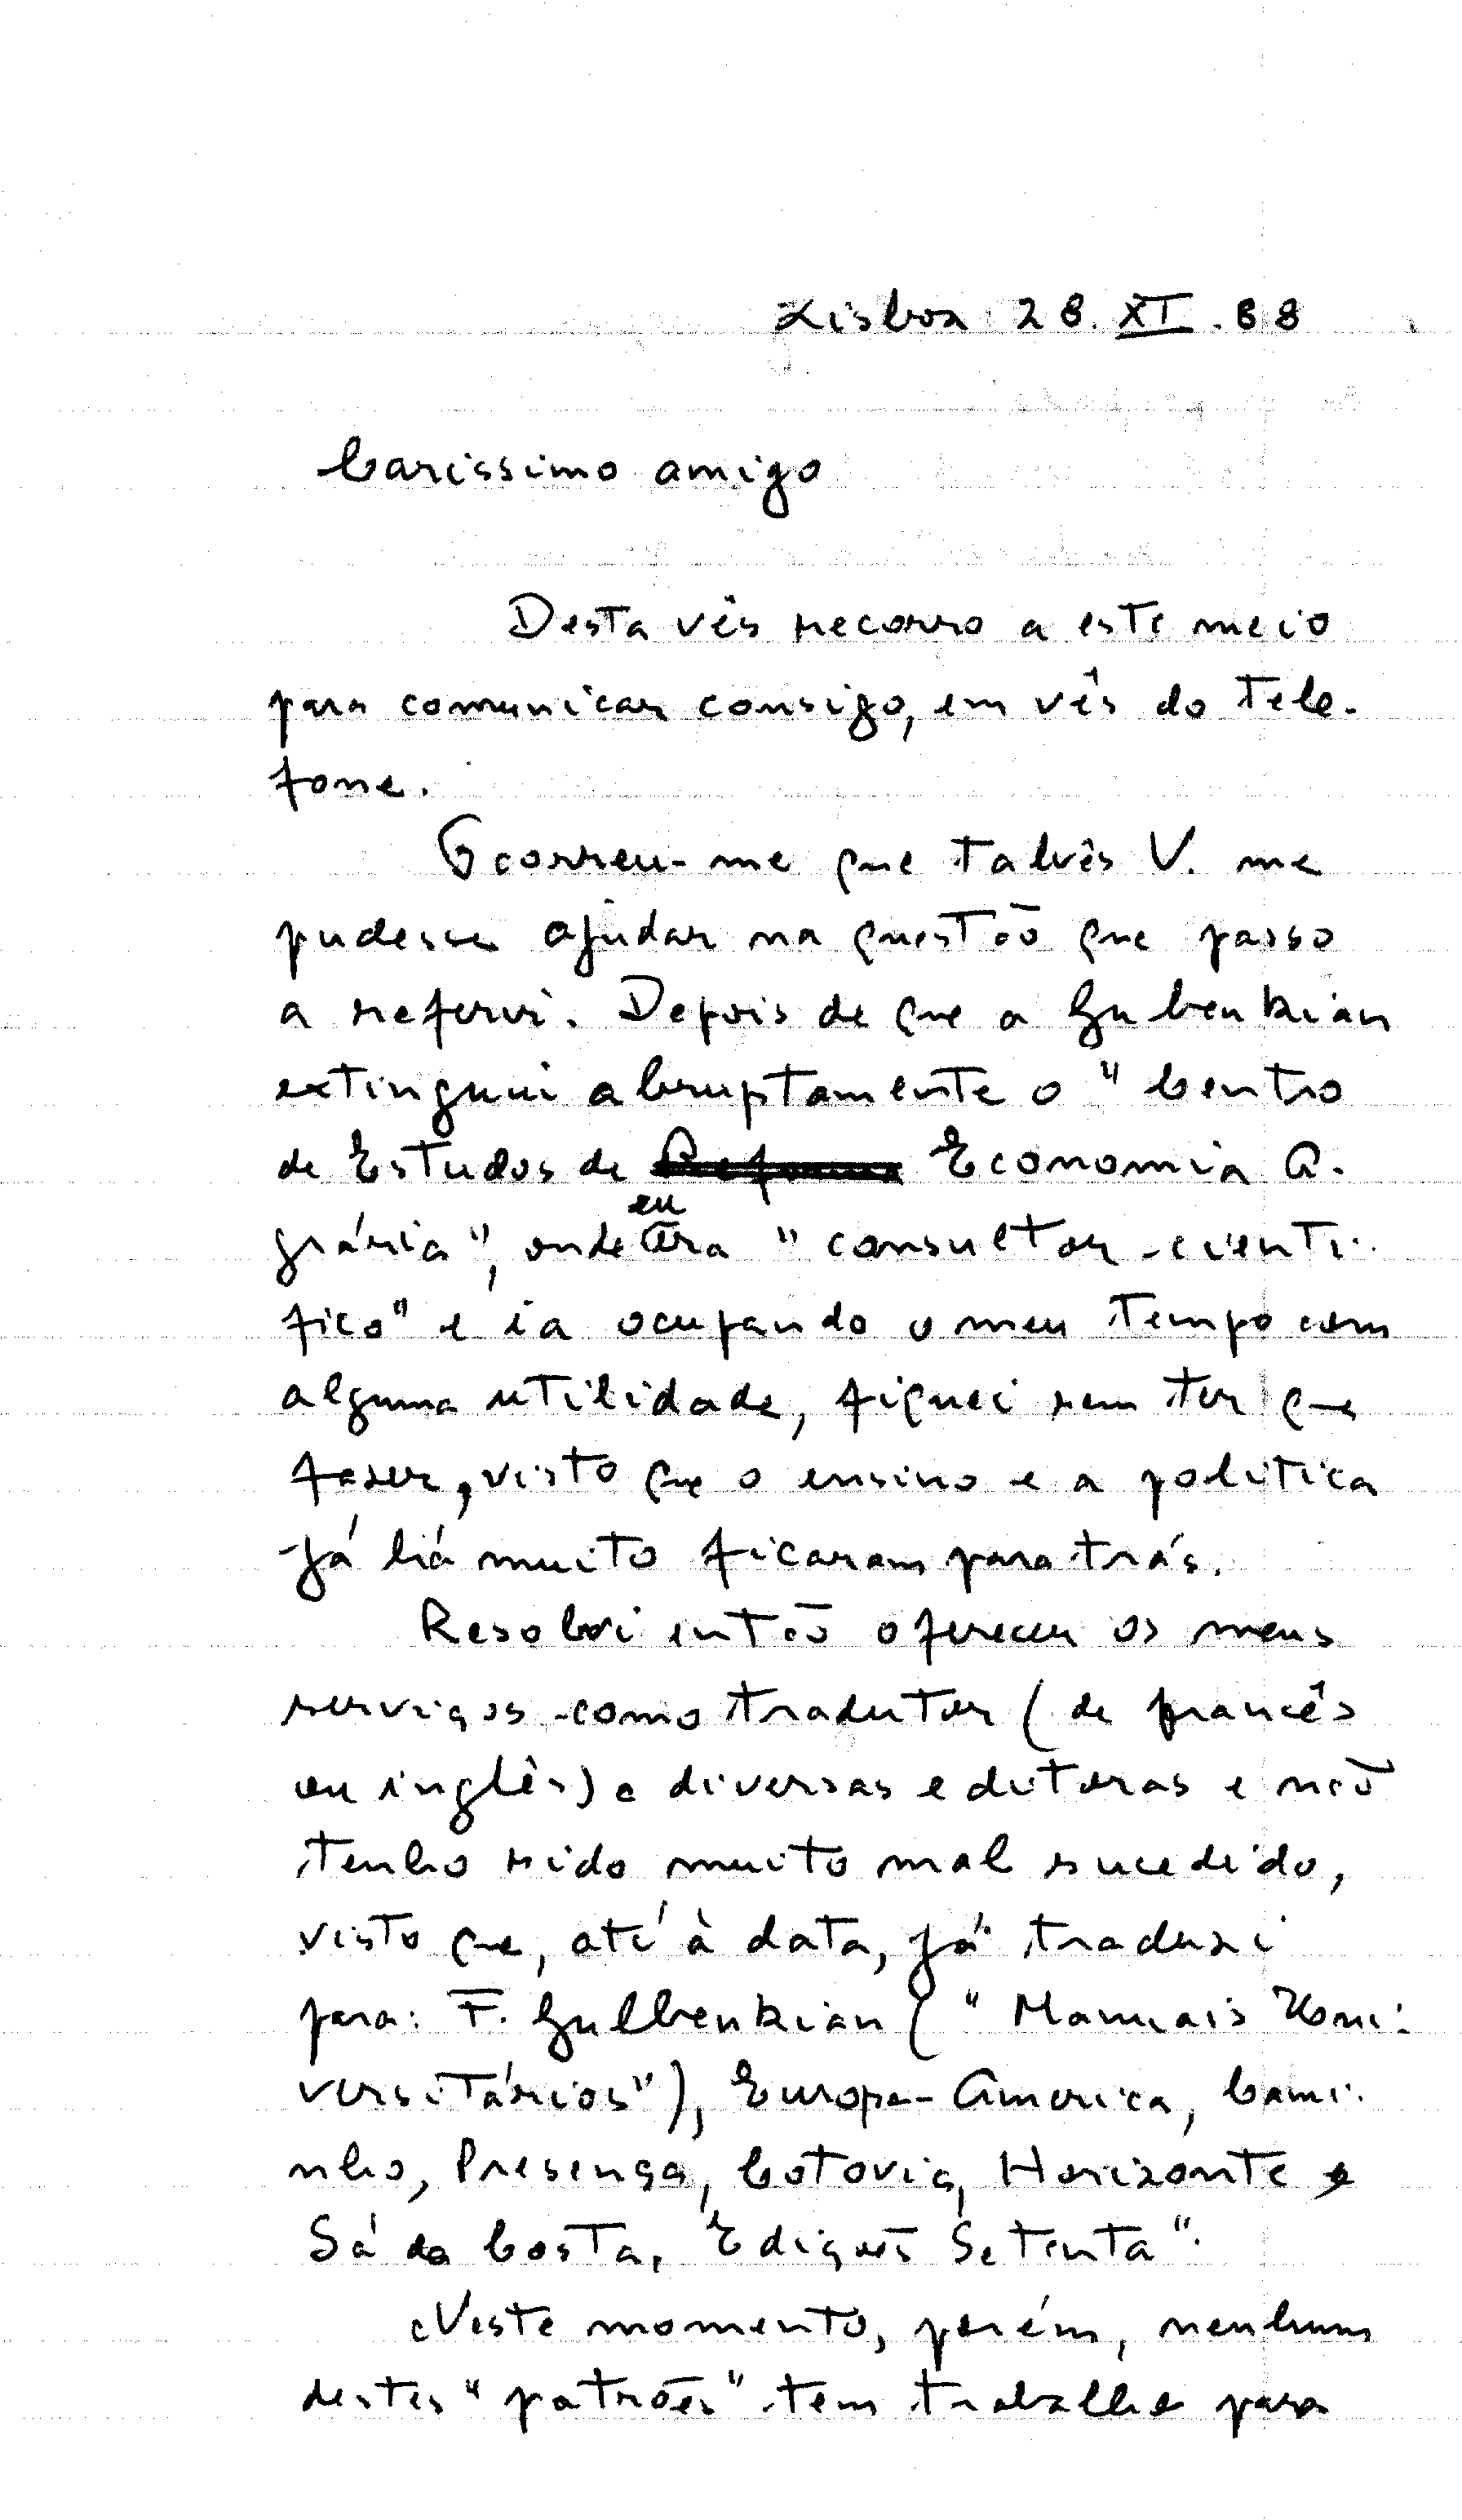 Lisboa 28.XI.88
Caríssimo amigo
Desta vês recorro a este meio
para comunicar consigo, em vês do tele-
fone.
Ocorreu-me que talvês V. me
pudesse ajudar na questão que passo
a referir. Depois de que a Gubenkian
extinguiu abruptamente o "Centro
de Estudos de Economia A-
grária", onde eu era "consultor cientí-
fico" e ia ocupando o meu tempo com
alguma utilidade, fiquei sem ter que
faser, visto que o ensino e a política
já há muito ficaram para trás.
Resolvi então oferecer os meus
serviços como tradutor (de francês
ou inglês) a diversas editoras e não
tenho sido muito mal sucedido,
visto que, até à data, já traduzi
para: F. Gulbenkian ("Manuais Uni-
versitários"), Europa-America, Cami-
nho, Presença, Cotovia, Horizonte e
Sá da Costa, Edições Setenta".
Neste momento, porém, nenhum
destes "patrões" tem trabalho para